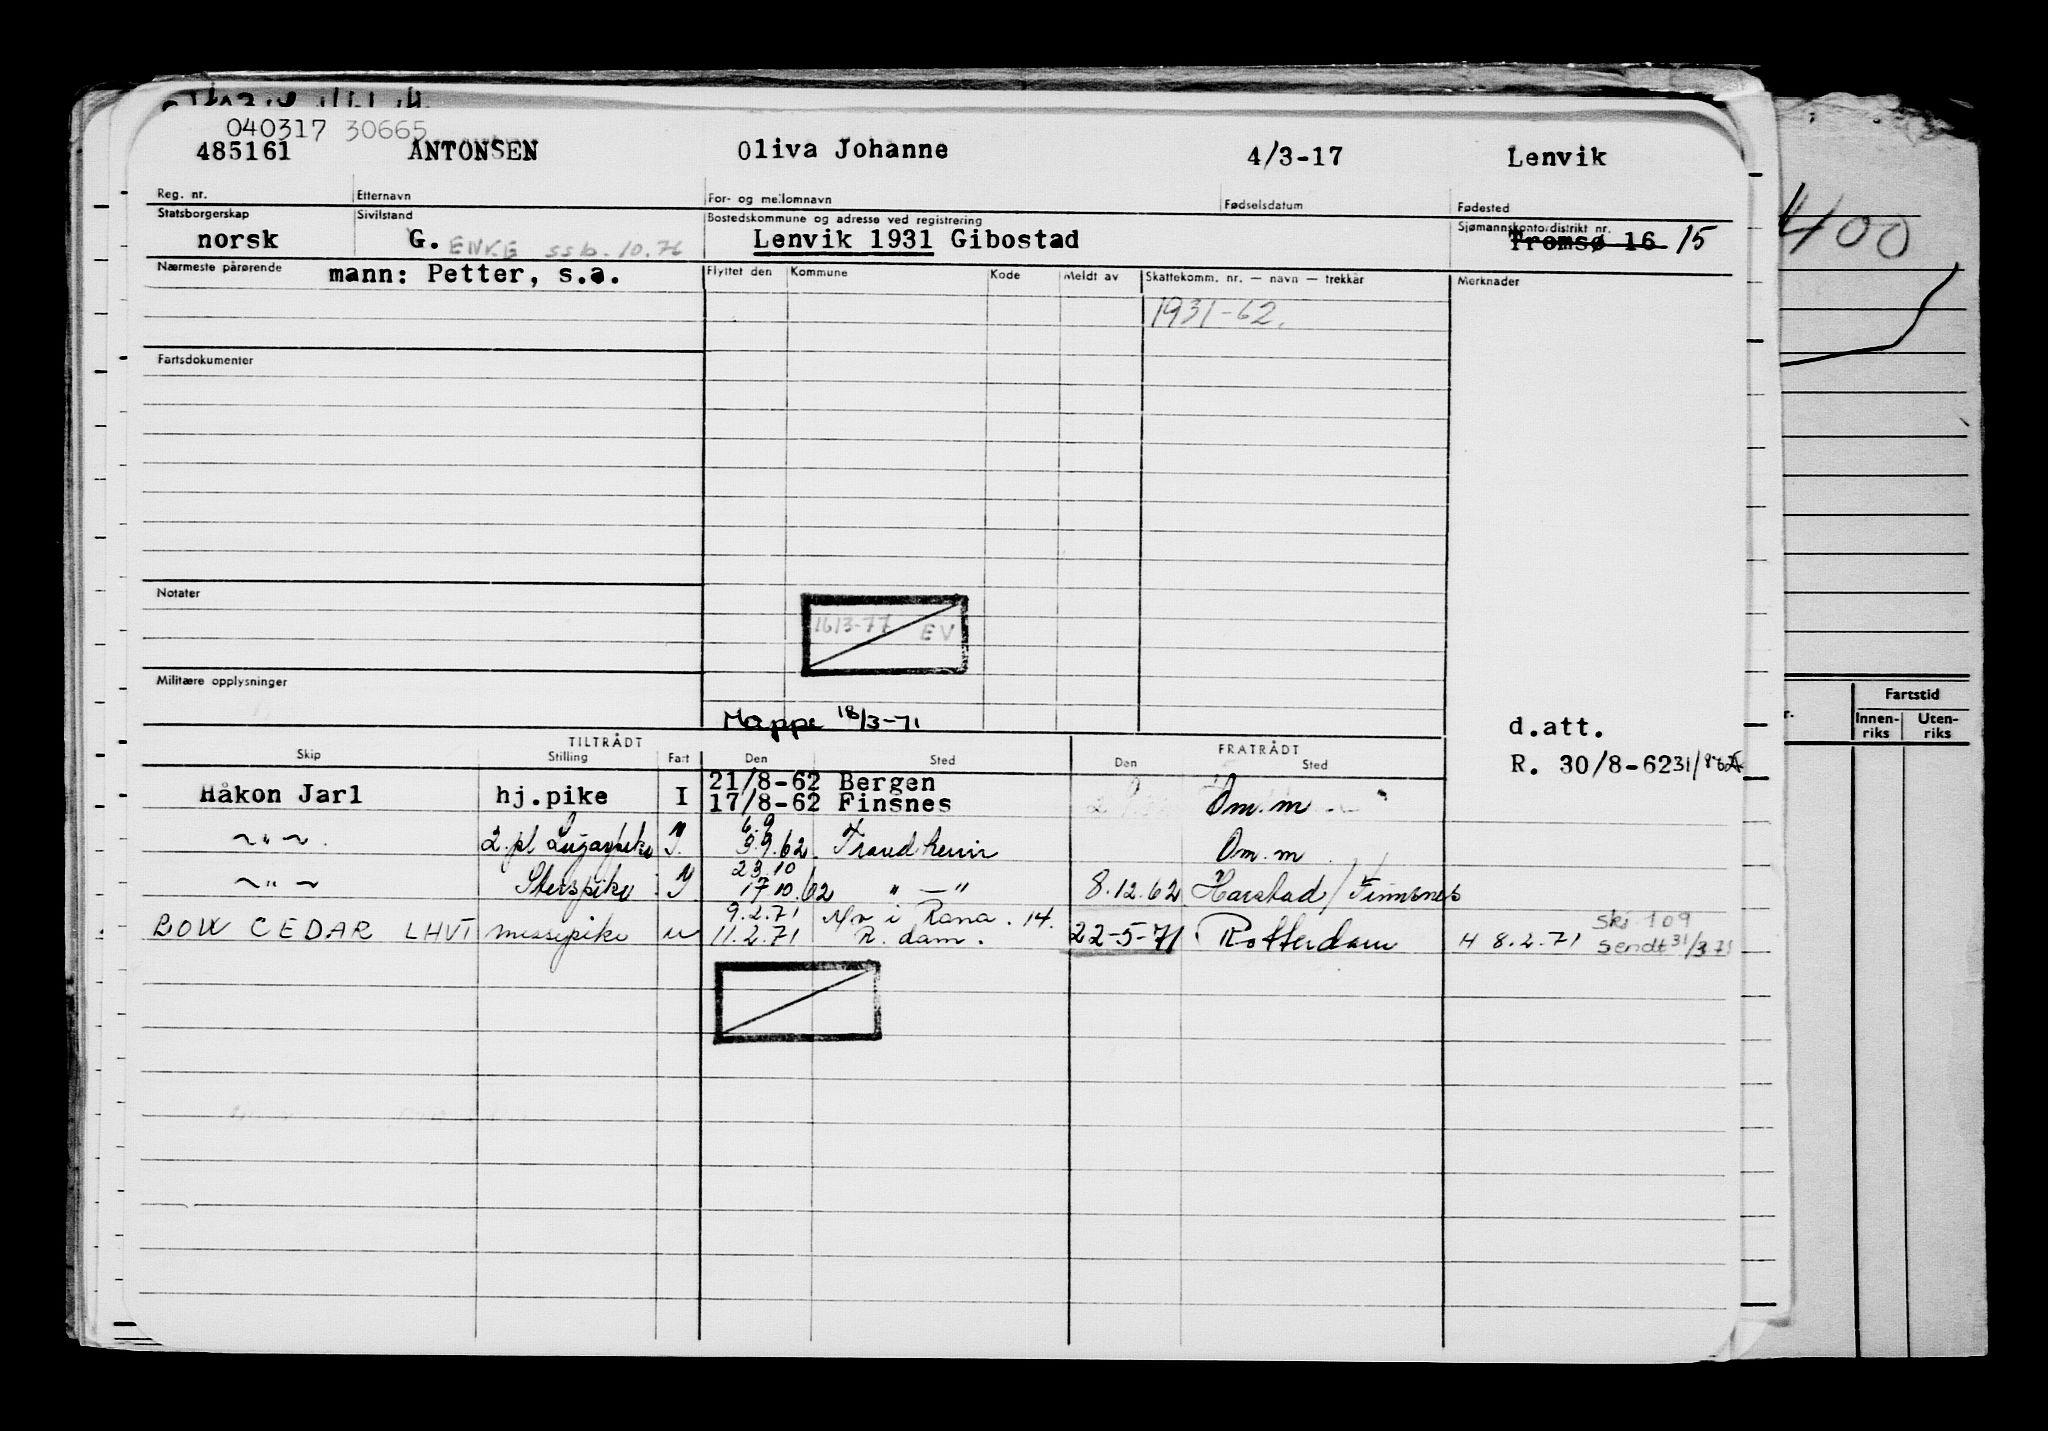 040317 30665
485161 ANTONSEN Oliva Johanne 4/3-17 Lenvik
Reg. nr. Etternavn For- og mellomnavn Fødselsdatum Fødested
Statsborgerskap Sivilstand Bostedskommune og adresse ved registrering Sjømannskontor/distrikt nr.
norsk G. ENKE ssb. 10.76 Lenvik 1931 Gibostad Tromsø 16 15
400
Nærmeste pårørende mann: Petter, s.a. Flyttet den Kommune Kode Meldt av Skattekomm. nr. — navn — trekkår Merknader
1931-62.
Fartsdokumenter
Notater
1613-77 EV
Militære opplysninger
Mappe 18/3-71
d.att.
R. 30/8-62 31/8-62
Fartstid
Innen-riks Uten-riks
TILTRÅDT FRATRÅDT
Skip Stilling Fart Den Sted Den Sted
21/8-62 Bergen
Håkon Jarl hj.pike I 17/8-62 Finsnes Om.m
6.9
~"~. 2.pl Lugarpike 3.9.62 Trondheim Om.m
23.10
~"~ Sterspike 17 10.62 " — " 8.12.62 Harstad / Finnsnes
9.2.71 Mo i Rana. 14.
BOW CEDAR LHVT messepike u 11.2.71 R.dam. 22-5-71 Rotterdam H 8.2.71 Skj 109
Sendt 31/3 71